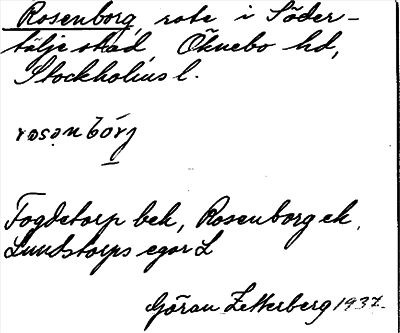 Rosenborg, rote i Söder-
tälje stad, Öknebo hd,
Stockholms l.
rosenbórj
Fogdetorp bek, Rosenborg ek,
Lundstorps egor L
Göran Zetterberg 1937.